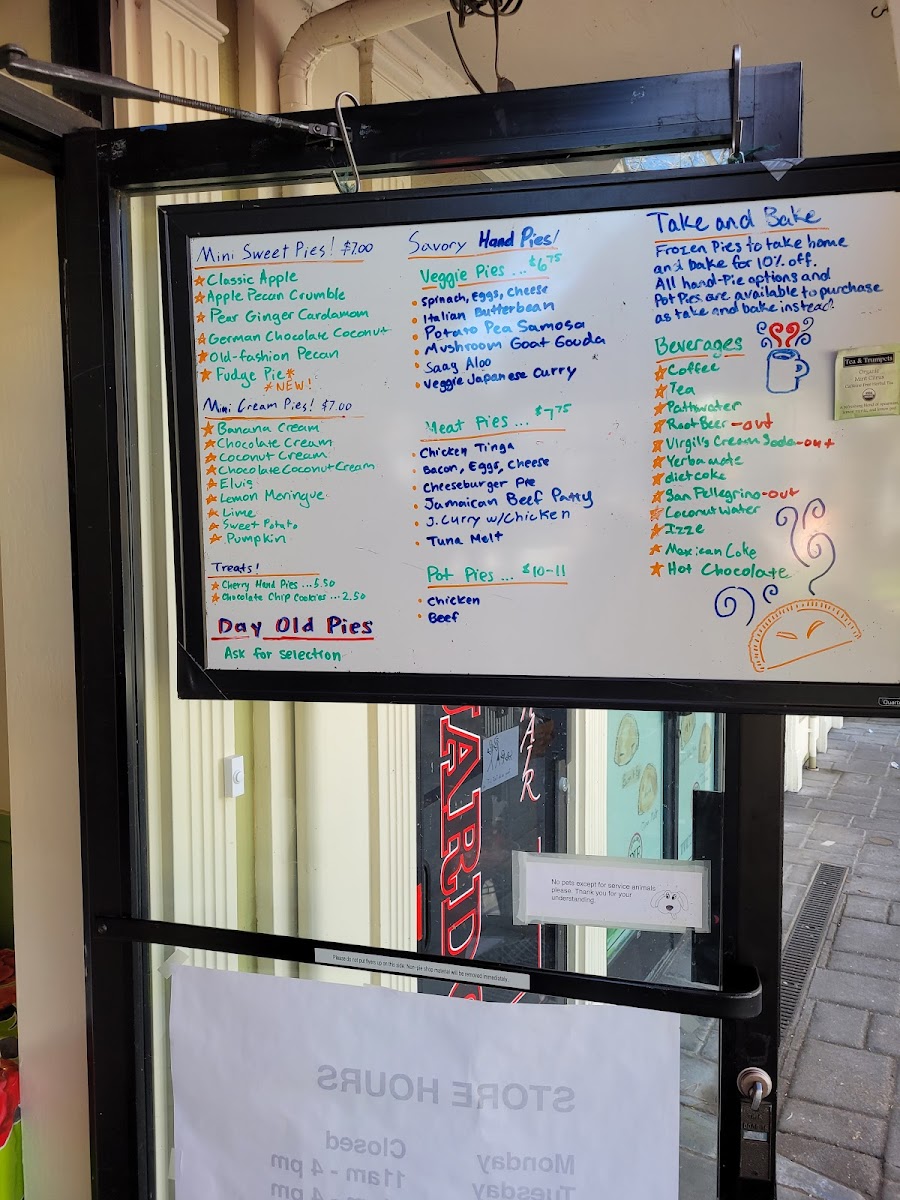 Mini Sweet Pies! $7.00
Classic Apple
Apple Pecan Crumble
Pear Ginger Cardamom
German Chocolate Coconut
Old-fashion Pecan
Fudge Pie
NEW!
Mini Cream Pies! $7.00
Banana Cream
Chocolate Cream
Coconut Cream
Chocolate Coconut Cream
Elvis
Lemon Meringue
Lime
Sweet Potato
Pumpkin
Treats!
Cherry Hand Pies ... 5.50
Chocolate Chip Cookies ... 2.50
Day Old Pies
Ask for selection
Savory Hand Pies!
Veggie Pies ... $6.75
Spinach, Eggs, Cheese
Italian Butterbean
Potato Pea Samosa
Mushroom Goat Gouda
Saag Aloo
Veggie Japanese Curry
Meat Pies ... $7.75
Chicken Tinga
Bacon, Eggs, Cheese
Cheeseburger Pie
Jamaican Beef Patty
J. Curry w/ Chicken
Tuna Melt
Pot Pies ... $10-11
Chicken
Beef
Take and Bake
Frozen Pies to take home
and bake for 10% off.
All hand-Pie options and
Pot Pies are available to purchase
as take and bake instead!
Beverages
Coffee
Tea
Pathwater
Root Beer -out
Virgil's Cream Soda -out
Yerba mate
diet coke
San Pellegrino -out
Coconut water
Izze
Mexican Coke
Hot Chocolate
Tea & Trumpets
Organic
Mint Citrus
Caffeine Free Herbal Tea
No pets except for service animals
please. Thank you for your
understanding.
Please do not put flyers up on this side. Non-pie shop material will be removed immediately.
STORE HOURS
Monday Closed
Tuesday 11am - 4 pm
4 pm